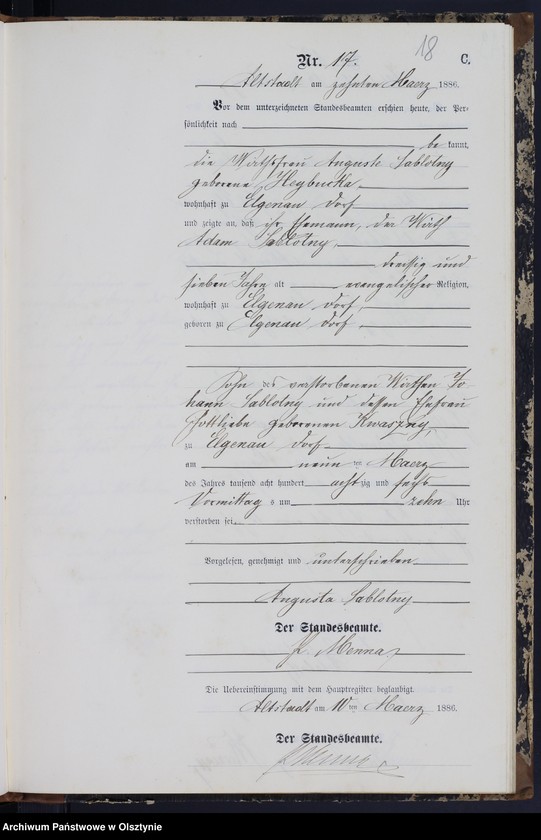 18
Nr. 17. C.
Altstadt am zehnten Maerz 1886.
Vor dem unterzeichneten Standesbeamten erschien heute, der Per-
sönlichkeit nach
be kannt,
die Wirthsfrau Auguste Sablotny
geborene Heybutka
wohnhaft zu Elgenau Dorf
und zeigte an, daß ihr Ehemann, der Wirth
Adam Sablotny,
dreissig und
sieben Jahre alt evangelischer Religion,
wohnhaft zu Elgenau Dorf,
geboren zu Elgenau Dorf,
Sohn des verstorbenen Wirthen Jo-
hann Sablotny und dessen Ehefrau
Gottliebe geborenen Kwaszny,
zu Elgenau Dorf
am neun ten Maerz
des Jahres tausend acht hundert achtzig und sechs
Vormittags um zehn Uhr
verstorben sei.
Vorgelesen, genehmigt und unterschrieben
Augusta Sablotny
Der Standesbeamte.
Menna
Die Uebereinstimmung mit dem Hauptregister beglaubigt.
Altstadt am 10ten Maerz 1886.
Der Standesbeamte.
Menna
Archiwum Państwowe w Olsztynie